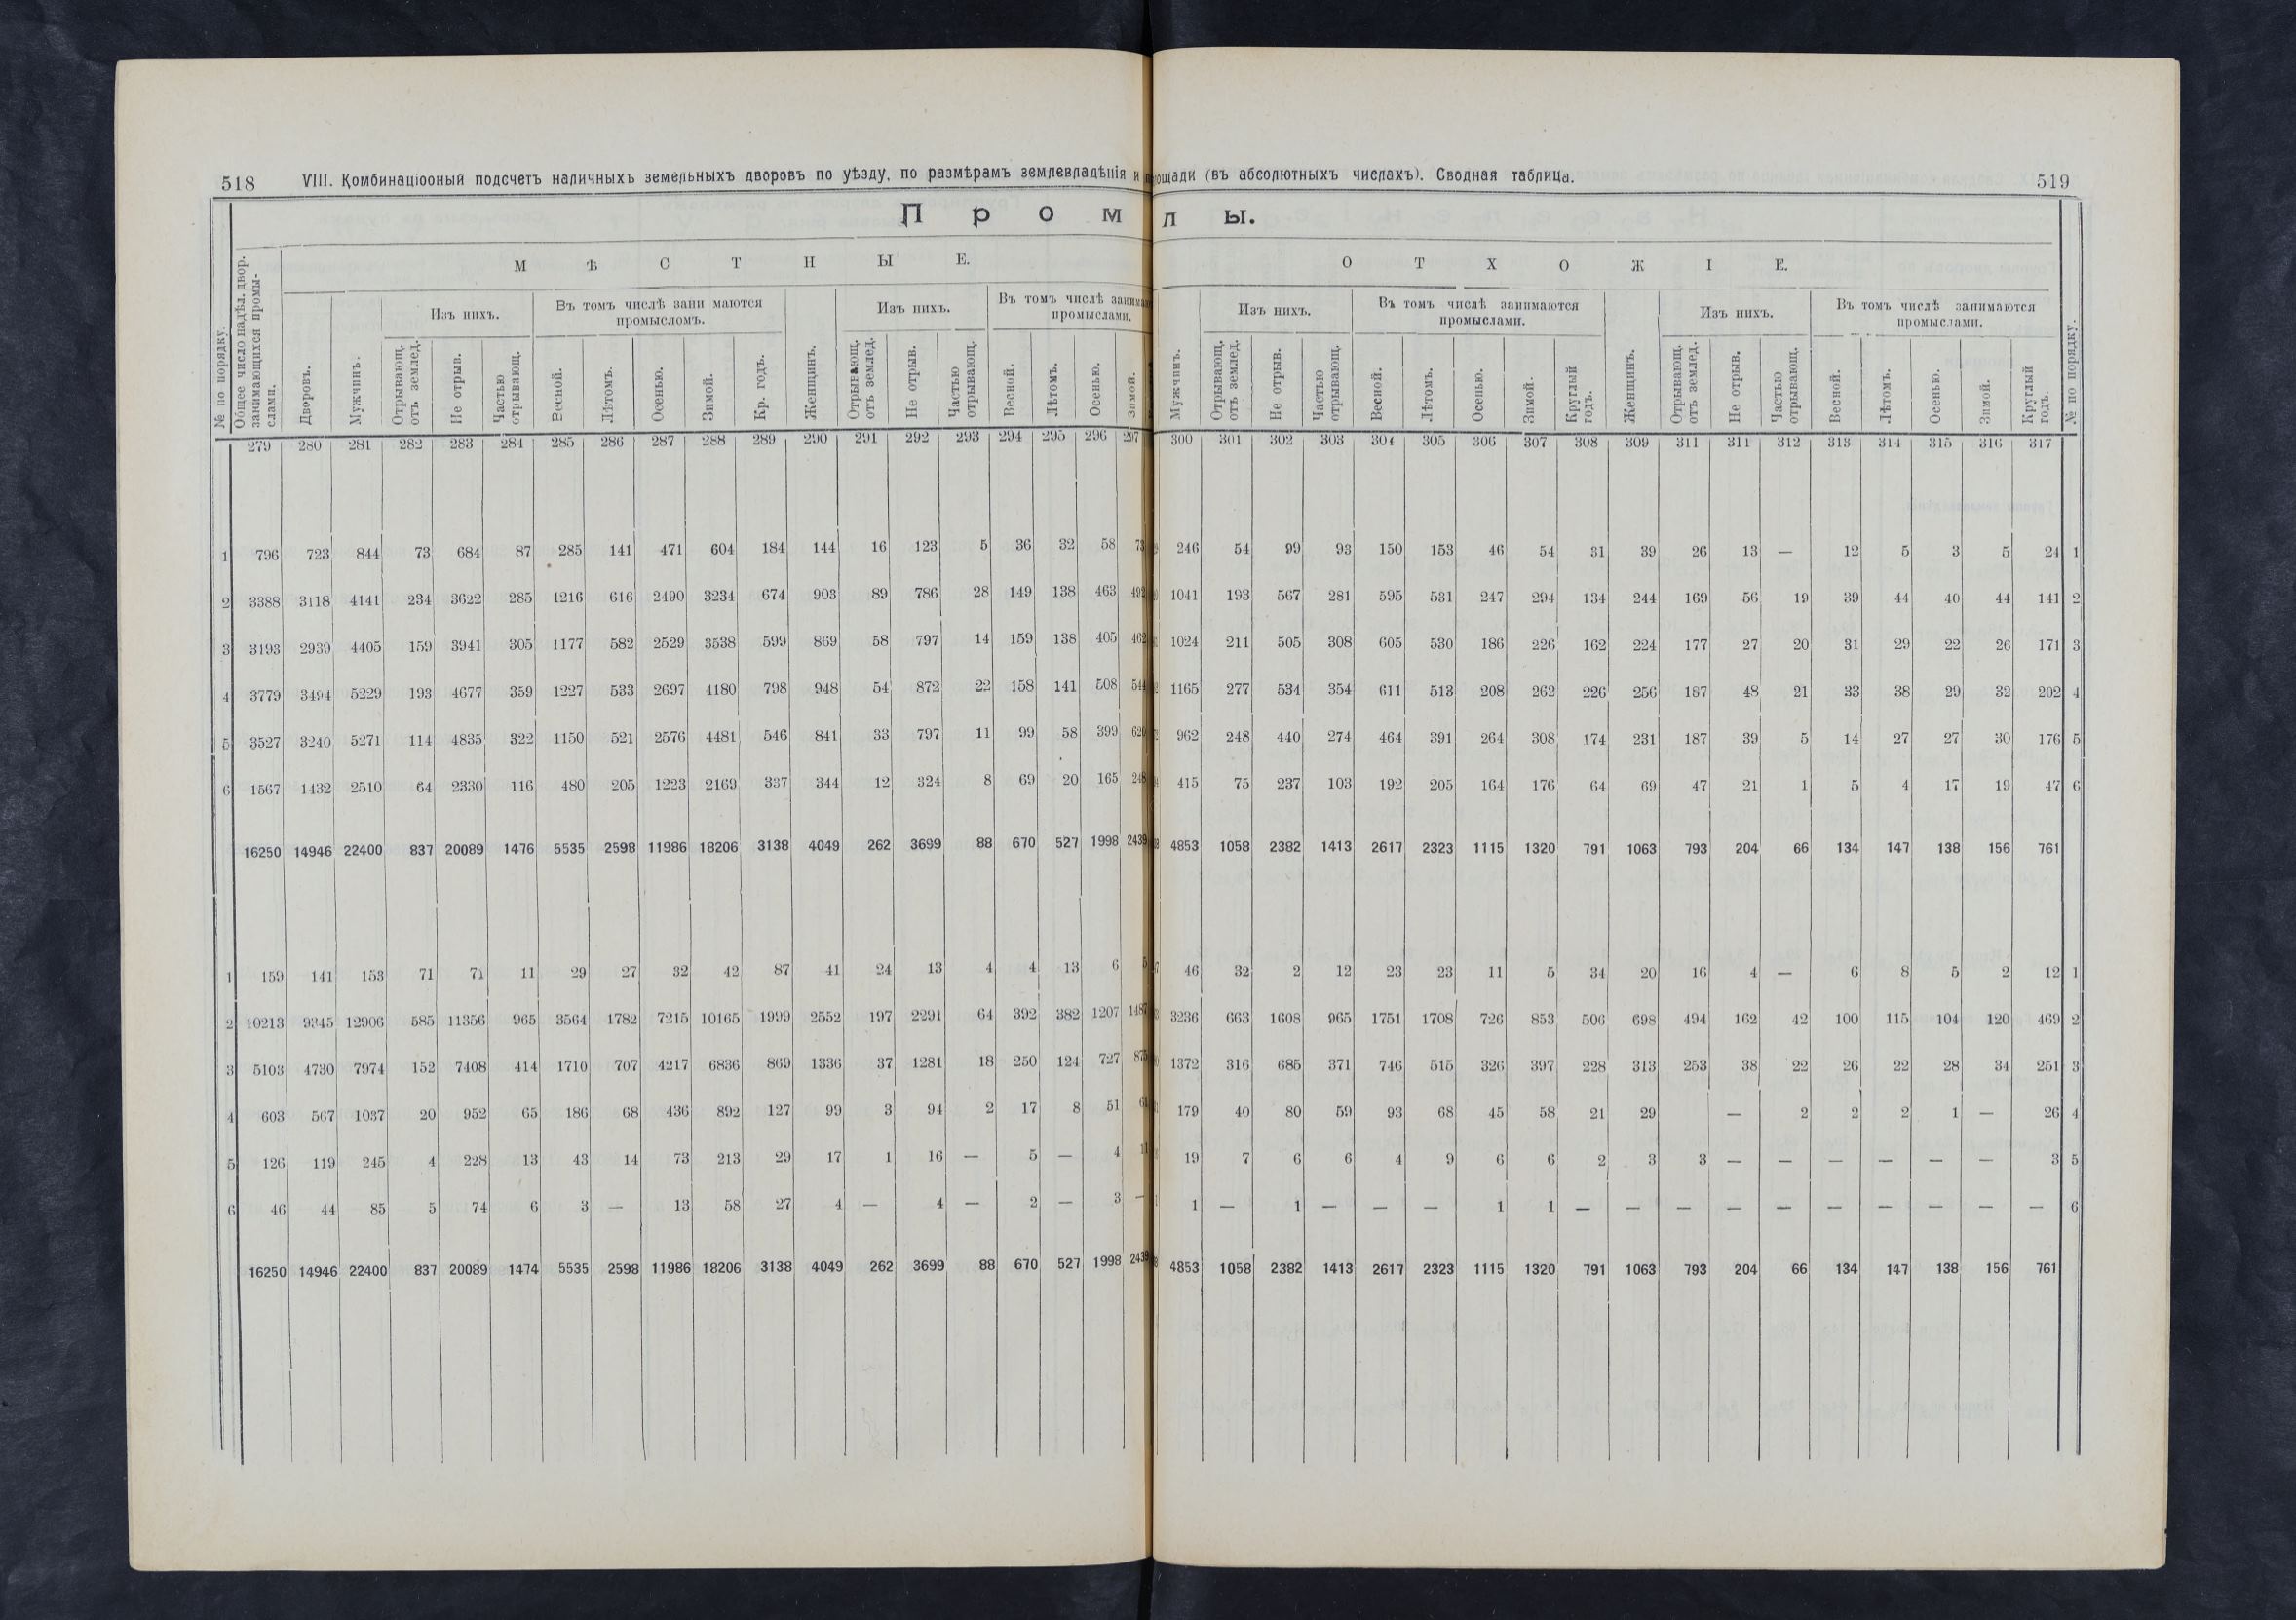 518 VIII. Комбинаціооный подсчетъ наличныхъ земельныхъ дворовъ по уѣзду, по размѣрамъ землевладѣнія и площади (въ абсолютныхъ числахъ). Сводная таблица. 519
П р о м л ы.
М Ѣ С Т Н Ы Е. О Т Х О Ж І Е.
№ по порядку. Общее число надѣл. двор. занимающихся промыслами. Дворовъ. Мужчинъ. Изъ нихъ. Отрывающ. отъ землед. Не отрыв. Частью отрывающ. Въ томъ числѣ зани маются промысломъ. Весной. Лѣтомъ. Осенью. Зимой. Кр. годъ. Женщинъ. Изъ нихъ. Отрывающ. отъ землед. Не отрыв. Частью отрывающ. Въ томъ числѣ промыслами. Весной. Лѣтомъ. Осенью. Зимой. Мужчинъ. Изъ нихъ. Отрывающ. отъ землед. Не отрыв. Частью отрывающ. Въ томъ числѣ занимаются промыслами. Весной. Лѣтомъ. Осенью. Зимой. Круглый годъ. Женщинъ. Изъ нихъ. Отрывающ. отъ землед. Не отрыв. Частью отрывающ. Въ томъ числѣ занимаются промыслами. Весной. Лѣтомъ. Осенью. Зимой. Круглый годъ. № по порядку.
279 280 281 282 283 284 285 286 287 288 289 290 291 292 293 294 295 296 297 300 301 302 303 304 305 306 307 308 309 311 311 312 313 314 315 316 317
1 796 723 844 73 684 87 285 141 471 604 184 144 16 123 5 36 32 58 73 246 54 99 93 150 153 46 54 31 39 26 13 — 12 5 3 5 24 1
2 3388 3118 4141 234 3622 285 1216 616 2490 3234 674 903 89 786 28 149 138 463 492 1041 193 567 281 595 531 247 294 134 244 169 56 19 39 44 40 44 141 2
3 3193 2939 4405 159 3941 305 1177 582 2529 3538 599 869 58 797 14 159 138 405 462 1024 211 505 308 605 530 186 226 162 224 177 27 20 31 29 22 26 171 3
4 3779 3494 5229 193 4677 359 1227 533 2697 4180 798 948 54 872 22 158 141 508 544 1165 277 534 354 611 513 208 262 226 256 187 48 21 33 38 29 32 202 4
5 3527 3240 5271 114 4835 322 1150 521 2576 4481 546 841 33 797 11 99 58 399 620 962 248 440 274 464 391 264 308 174 231 187 39 5 14 27 27 30 176 5
6 1567 1432 2510 64 2330 116 480 205 1223 2169 337 344 12 324 8 69 20 165 248 415 75 237 103 192 205 164 176 64 69 47 21 1 5 4 17 19 47 6
16250 14946 22400 837 20089 1476 5535 2598 11986 18206 3138 4049 262 3699 88 670 527 1998 2439 4853 1058 2382 1413 2617 2323 1115 1320 791 1063 793 204 66 134 147 138 156 761
1 159 141 153 71 71 11 29 27 32 42 87 41 24 13 4 4 13 6 5 46 32 2 12 23 23 11 5 34 20 16 4 — 6 8 5 2 12 1
2 10213 9345 12906 585 11356 965 3564 1782 7215 10165 1999 2552 197 2291 64 392 382 1207 1487 3236 663 1608 965 1751 1708 726 853 506 698 494 162 42 100 115 104 120 469 2
3 5103 4730 7974 152 7408 414 1710 707 4217 6836 869 1336 37 1281 18 250 124 727 875 1372 316 685 371 746 515 326 397 228 313 253 38 22 26 22 28 34 251 3
4 603 567 1037 20 952 65 186 68 436 892 127 99 3 94 2 17 8 51 61 179 40 80 59 93 68 45 58 21 29 — 2 2 2 1 — 26 4
5 126 119 245 4 228 13 43 14 73 213 29 17 1 16 — 5 — 4 11 19 7 6 6 4 9 6 6 2 3 3 — — — — — — 3 5
6 46 44 85 5 74 6 3 — 13 58 27 4 — 4 — 2 — 3 — 1 — 1 — — — 1 1 — — — — — — — — — — 6
16250 14946 22400 837 20089 1474 5535 2598 11986 18206 3138 4049 262 3699 88 670 527 1998 2439 4853 1058 2382 1413 2617 2323 1115 1320 791 1063 793 204 66 134 147 138 156 761